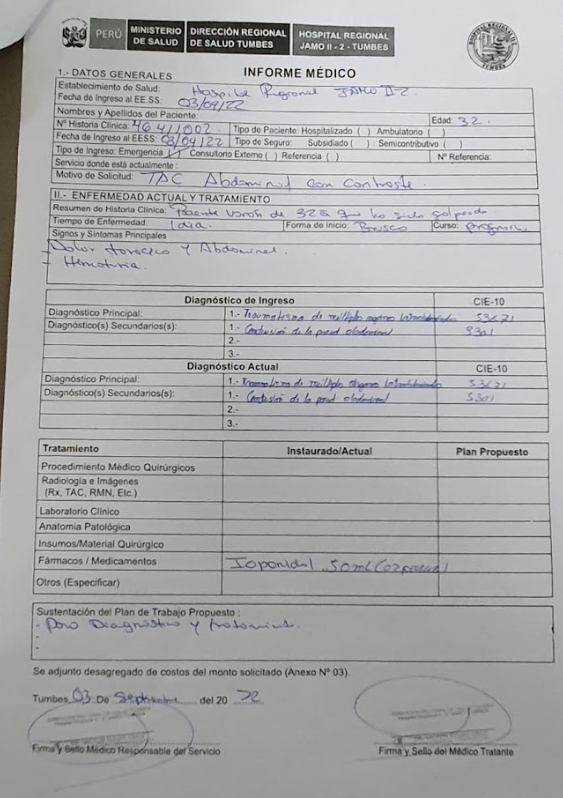 PERÚ MINISTERIO DE SALUD DIRECCIÓN REGIONAL DE SALUD TUMBES HOSPITAL REGIONAL JAMO II - 2 - TUMBES
HOSPITAL REGIONAL II TUMBES
INFORME MÉDICO
1.- DATOS GENERALES
Establecimiento de Salud: Hospital Regional JAMO II-2
Fecha de Ingreso al EE.SS: 03/09/22
Nombres y Apellidos del Paciente: Edad: 32.
Nº Historia Clínica: 46411002. Tipo de Paciente: Hospitalizado ( ) Ambulatorio ( )
Fecha de Ingreso al EESS: 03/09/22 Tipo de Seguro: Subsidiado ( ) Semicontributivo ( )
Tipo de Ingreso: Emergencia ( ) Consultorio Externo ( ) Referencia ( ) Nº Referencia:
Servicio donde está actualmente :
Motivo de Solicitud: TAC Abdominal con Contraste.
II.- ENFERMEDAD ACTUAL Y TRATAMIENTO
Resumen de Historia Clínica: Paciente varón de 32a que ha sido golpeado
Tiempo de Enfermedad 1 día. Forma de Inicio: Brusco Curso:
Signos y Síntomas Principales
- Dolor torácico y Abdominal.
- Hematuria.
Diagnóstico de Ingreso CIE-10
Diagnóstico Principal: 1.- Traumatismo de múltiples órganos intraabdominales S3671
Diagnóstico(s) Secundarios(s): 1.- Contusión de la pared abdominal S301
2.-
3.-
Diagnóstico Actual CIE-10
Diagnóstico Principal: 1.- Traumatismo de múltiples órganos intraabdominales S3671
Diagnóstico(s) Secundarios(s): 1.- Contusión de la pared abdominal S301
2.-
3.-
Tratamiento Instaurado/Actual Plan Propuesto
Procedimiento Médico Quirúrgicos
Radiología e Imágenes
(Rx, TAC, RMN, Etc.)
Laboratorio Clínico
Anatomía Patológica
Insumos/Material Quirúrgico
Fármacos / Medicamentos 50ml
Otros (Especificar)
Sustentación del Plan de Trabajo Propuesto :
- Para Diagnóstico y tratamiento.
-
-
Se adjunto desagregado de costos del monto solicitado (Anexo Nº 03).
Tumbes, 03 De Septiembre del 20 22
Firma y Sello Médico Responsable del Servicio Firma y Sello del Médico Tratante